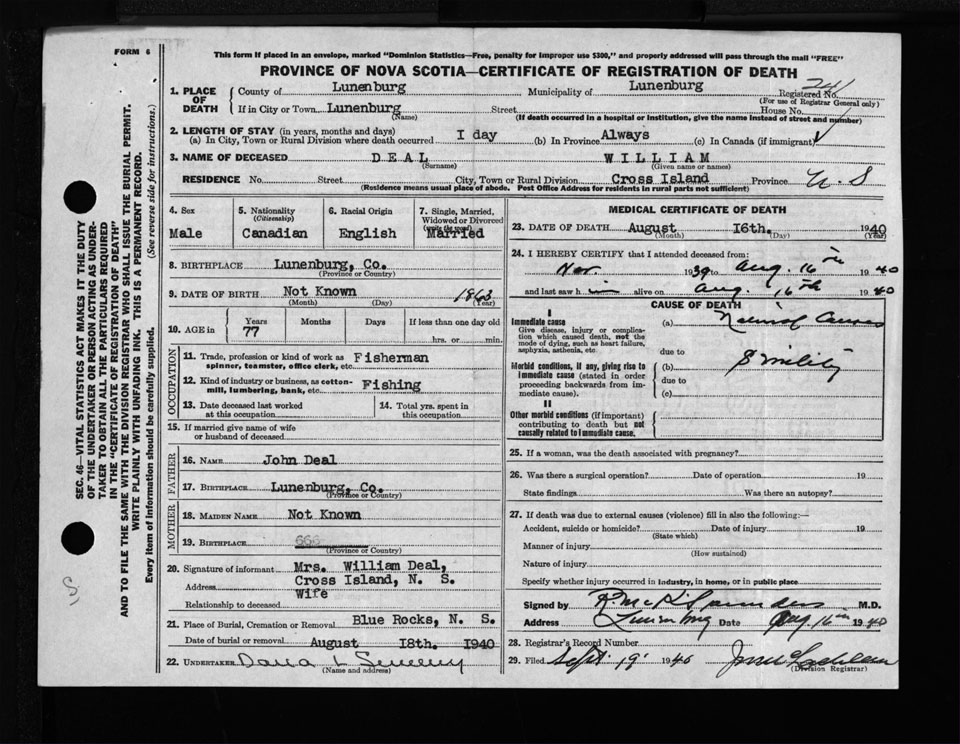 FORM 6
This form if placed in an envelope, marked "Dominion Statistics—Free, penalty for improper use $300," and properly addressed will pass through the mail "FREE"
PROVINCE OF NOVA SCOTIA—CERTIFICATE OF REGISTRATION OF DEATH
1. PLACE OF DEATH
County of Lunenburg Municipality of Lunenburg Registered No.
(For use of Registrar General only)
If in City or Town Lunenburg Street House No.
(Name) (If death occurred in a hospital or institution, give the name instead of street and number)
2. LENGTH OF STAY (in years, months and days)
(a) In City, Town or Rural Division where death occurred I day (b) In Province Always (c) In Canada (if immigrant)
3. NAME OF DECEASED DEAL WILLIAM
(Surname) (Given name or names)
RESIDENCE No. Street City, Town or Rural Division Cross Island Province N S
(Residence means usual place of abode. Post Office Address for residents in rural parts not sufficient)
4. Sex
Male
5. Nationality (Citizenship)
Canadian
6. Racial Origin
English
7. Single, Married, Widowed or Divorced (write the word)
Married
8. BIRTHPLACE Lunenburg, Co.
(Province or Country)
9. DATE OF BIRTH Not Known 1863
(Month) (Day) (Year)
10. AGE in Years Months Days If less than one day old
77 hrs. or min.
OCCUPATION
11. Trade, profession or kind of work as Fisherman
spinner, teamster, office clerk, etc.
12. Kind of industry or business, as cotton- Fishing
mill, lumbering, bank, etc.
13. Date deceased last worked at this occupation
14. Total yrs. spent in this occupation
15. If married give name of wife
or husband of deceased
FATHER
16. NAME John Deal
17. BIRTHPLACE Lunenburg, Co.
(Province or Country)
MOTHER
18. MAIDEN NAME Not Known
19. BIRTHPLACE 666
(Province or Country)
20. Signature of informant Mrs. William Deal,
Address Cross Island, N. S.
Wife
Relationship to deceased
21. Place of Burial, Cremation or Removal Blue Rocks, N. S.
Date of burial or removal August I8th. 1940
22. UNDERTAKER
(Name and address)
MEDICAL CERTIFICATE OF DEATH
23. DATE OF DEATH August I6th. 1940
(Month) (Day) (Year)
24. I HEREBY CERTIFY that I attended deceased from:
Nov 1939 to Aug. 16th 1940
and last saw him alive on Aug. 16th 1940
CAUSE OF DEATH
I
Immediate cause (a) Natural Causes
Give disease, injury or complication which caused death, not the mode of dying, such as heart failure, asphyxia, asthenia, etc.
due to
Morbid conditions, if any, giving rise to immediate cause (stated in order proceeding backwards from immediate cause).
(b) Senility
due to
(c)
II
Other morbid conditions (if important) contributing to death but not causally related to immediate cause.
25. If a woman, was the death associated with pregnancy?
26. Was there a surgical operation? Date of operation 19
State findings Was there an autopsy?
27. If death was due to external causes (violence) fill in also the following:—
Accident, suicide or homicide? Date of injury 19
(State which)
Manner of injury
(How sustained)
Nature of injury
Specify whether injury occurred in industry, in home, or in public place
Signed by M.D.
Address Lunenburg Date Aug. 16th 1940
28. Registrar's Record Number
29. Filed Sept. 19 1940
(Division Registrar)
SEC. 46—VITAL STATISTICS ACT MAKES IT THE DUTY
OF THE UNDERTAKER OR PERSON ACTING AS UNDER-
TAKER TO OBTAIN ALL THE PARTICULARS REQUIRED
IN THE "CERTIFICATE OF REGISTRATION OF DEATH"
AND TO FILE THE SAME WITH THE DIVISION REGISTRAR WHO SHALL ISSUE THE BURIAL PERMIT.
WRITE PLAINLY WITH UNFADING INK. THIS IS A PERMANENT RECORD.
Every item of information should be carefully supplied. (See reverse side for instructions.)